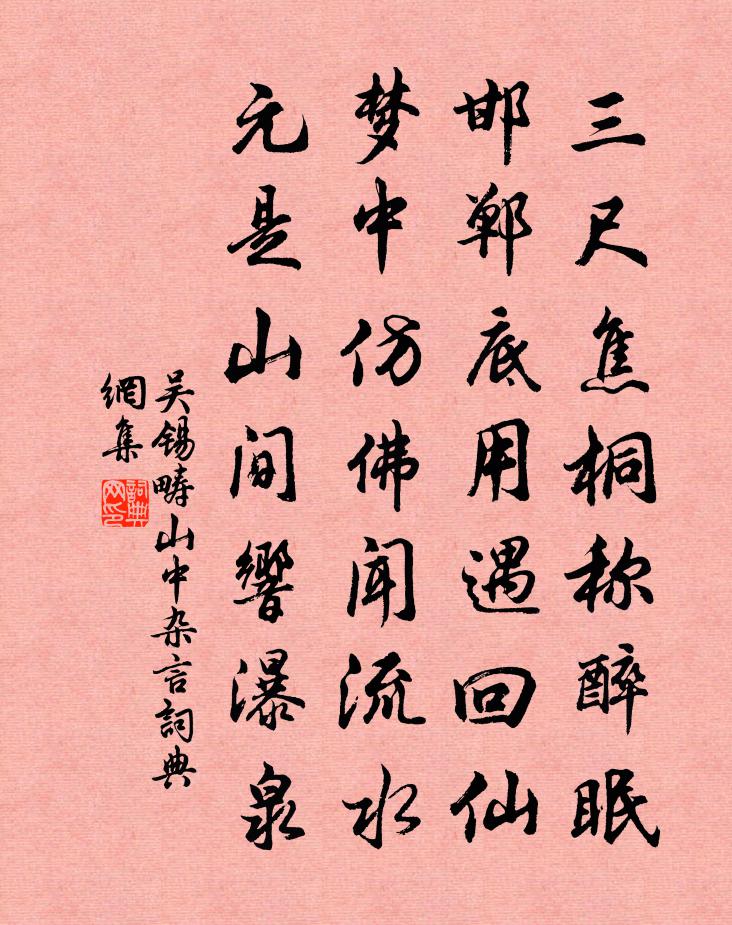 三尺焦桐称醉眠
邯郸底用遇回仙
梦中仿佛闻流水
元是山间響瀑泉
吴锡畴山中杂言詞典
網集
詞典
网印